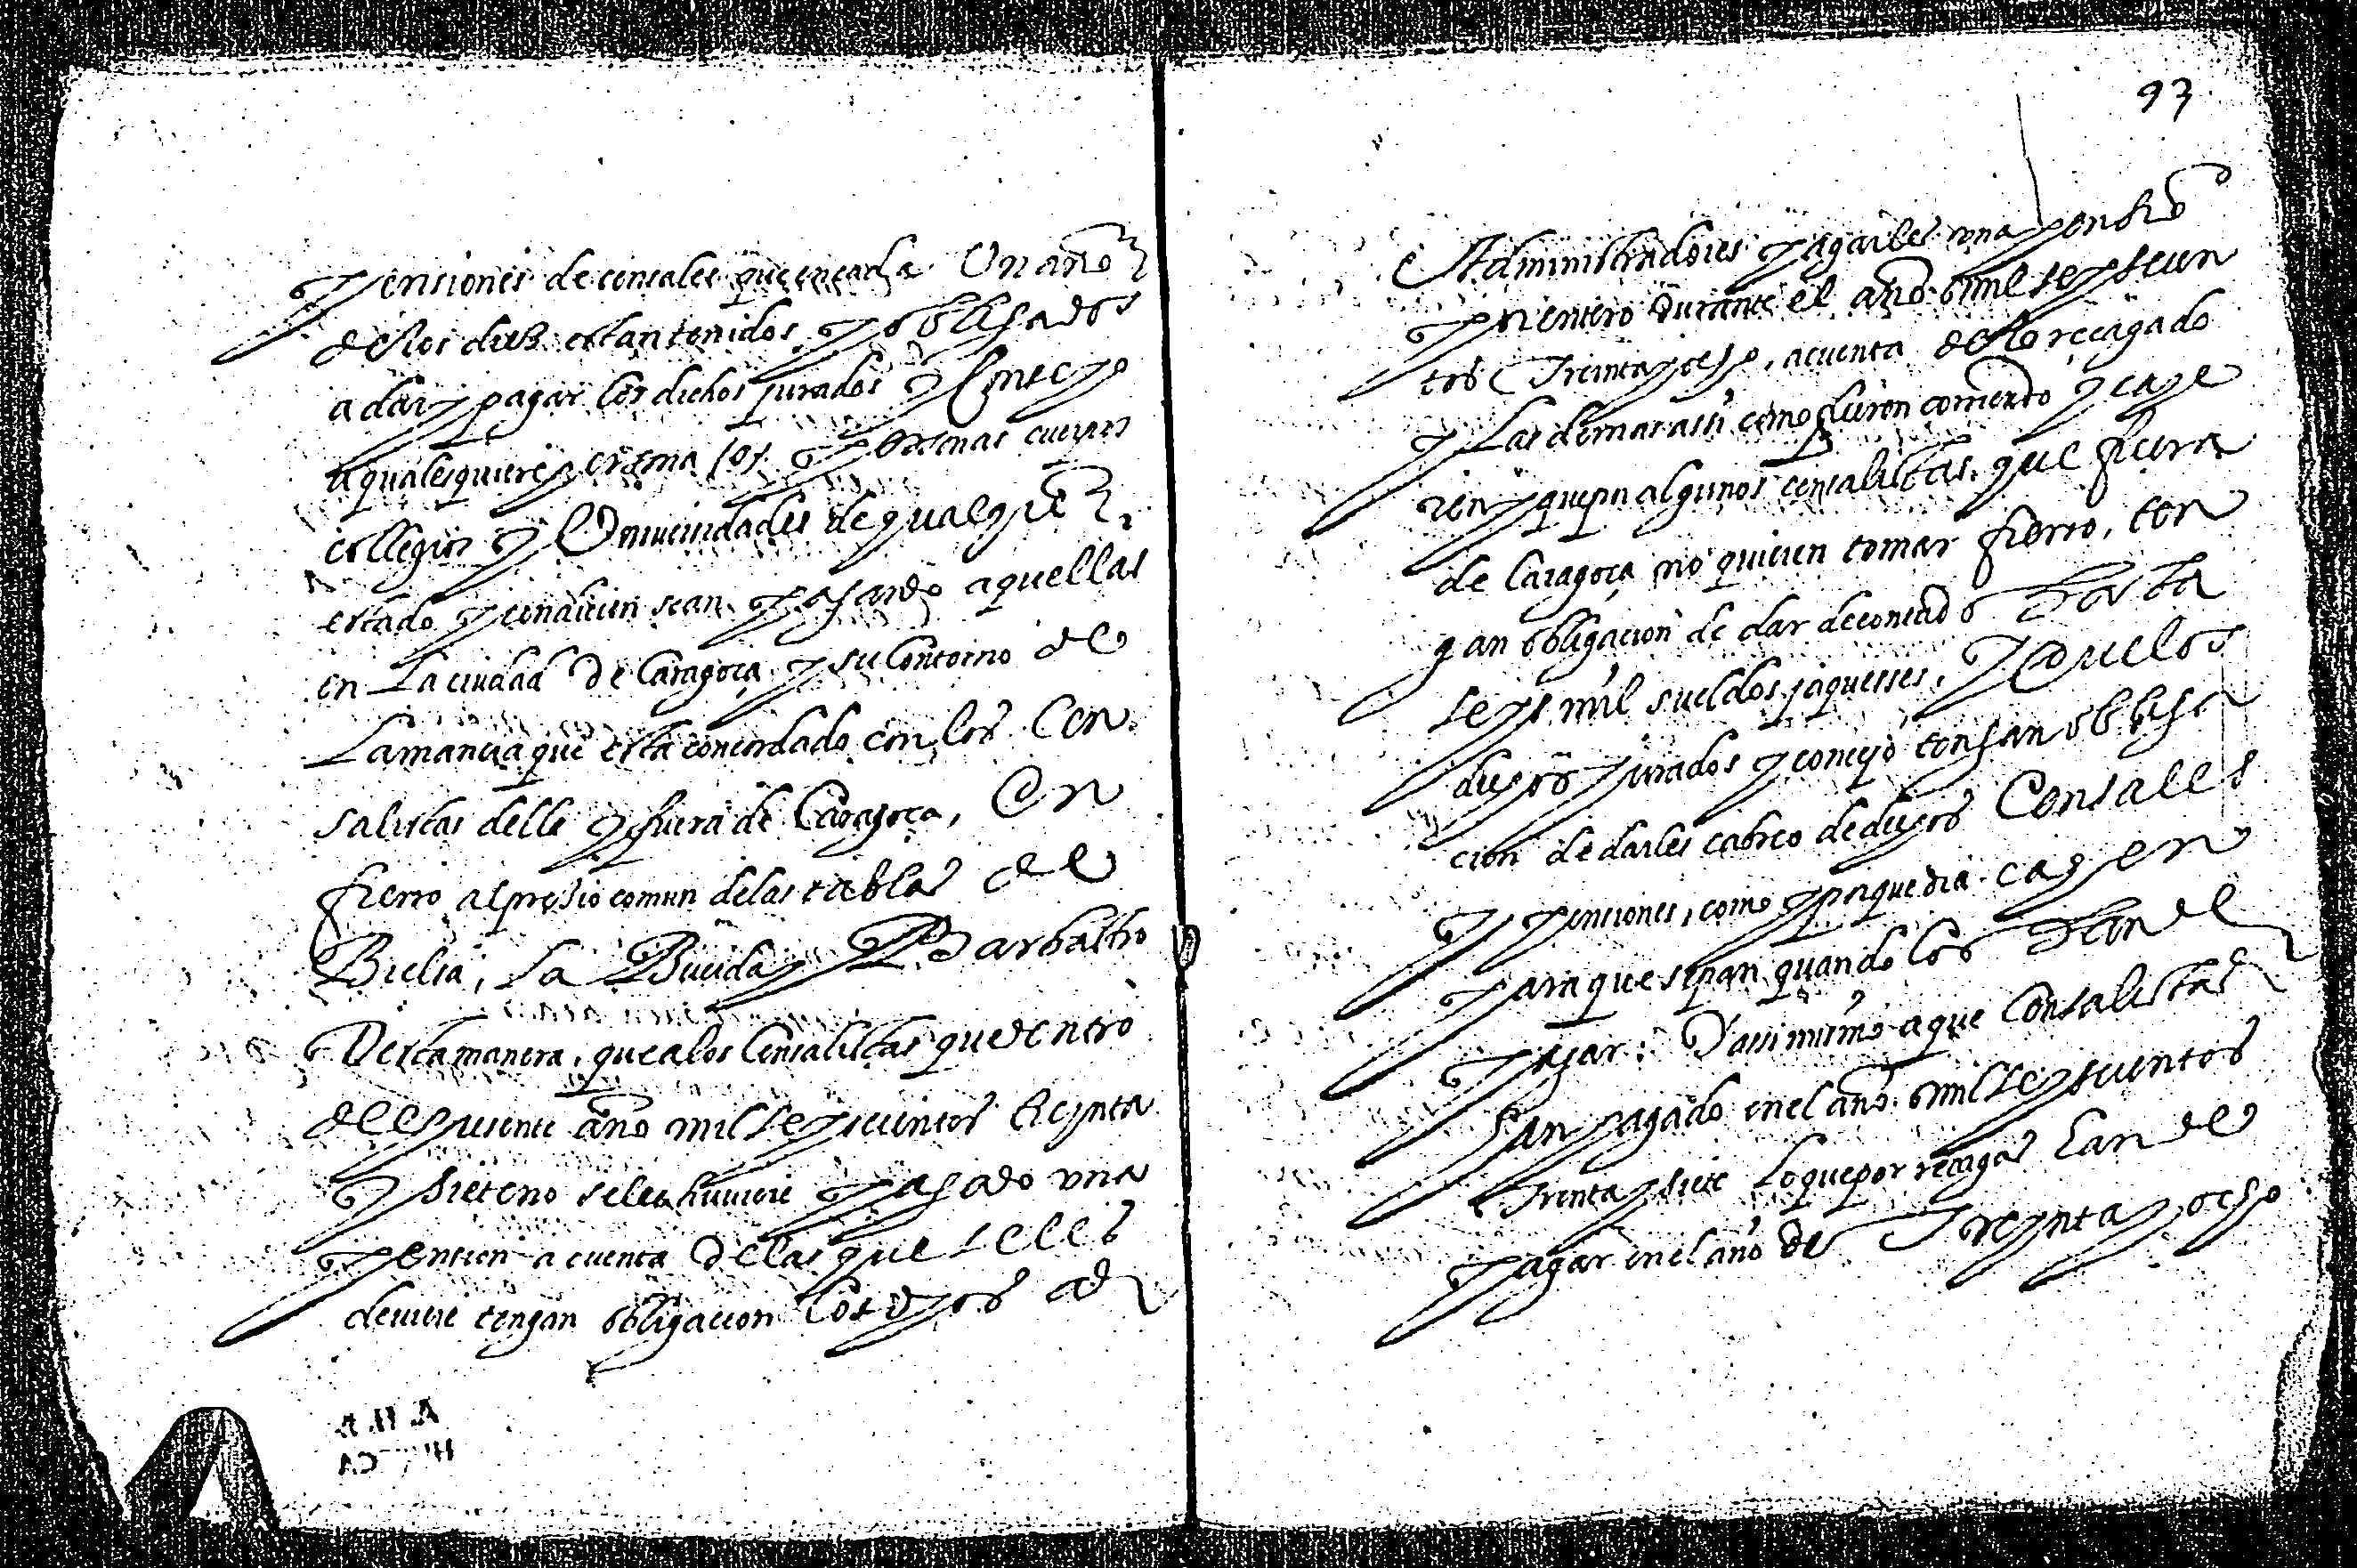 pensiones de censales que en cada Un año
destos diez estan tenidos y obligados
a dar y pagar los dichos jurados y Consejo
a qualesquiere persona los personas cuerpos
collegios y Universidades de qualquier
estado y condicion sean pagando aquellas
en La ciudad de Caragoça y su Contorno de
La manera que esta concordado con los Cen
salistas della y fuera de Caragoça, En
fierro al presio comun delas tablas de
Bielsa, La Buerda y Barbastro
Desta manera, que a los Censalistas que dentro
del presente año mil seyscientos treynta
y siete no seles huviere pagado una
pension a cuenta Delas que se les
deviere tengan obligacion los dhos ad
93
Administradores pagarles una pensio
primero durante el año mil seyscien
tos Treinta y ocho, a cuenta de lo reçagado
y Las demas assi como fueron corriendo y caye
ren y que sin algunos censalistas que fuera
de Caragoça no quieren tomar fierro, ten
gan obligacion de dar decontado hasta
seys mil sueldos jaqueses, y que los
dichos jurados y consejo tengan obliga
cion de darles cabreo de dichos Censales
y pensiones, como y en que dia cayen
para que sepan quando los han de
pagar: Y assi mismo a que Censalistas
han pagado en el año mil seyscientos
Trenta y siete Lo que por reçagas han de
pagar en el año de Treynta y ocho